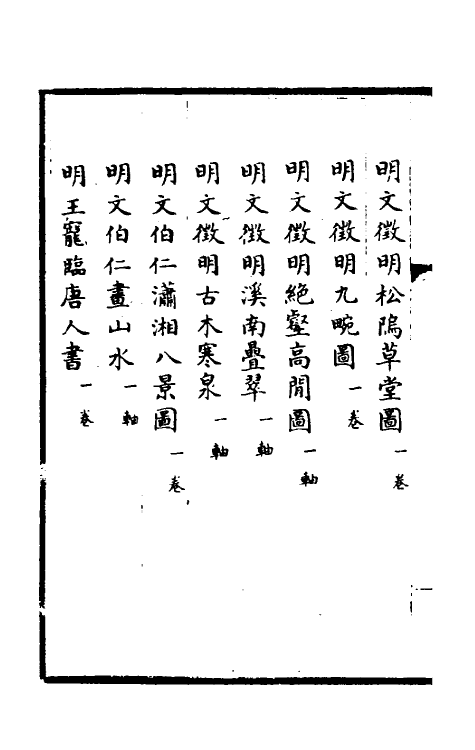 明文徵明松隖草堂圖一卷
明文徵明九畹圖一卷
明文徵明絶壑高閒圖一軸
明文徵明溪南疊翠一軸
明文徵明古木寒泉一軸
明文伯仁瀟湘八景圖一卷
明文伯仁畫山水一軸
明王寵臨唐人書一卷